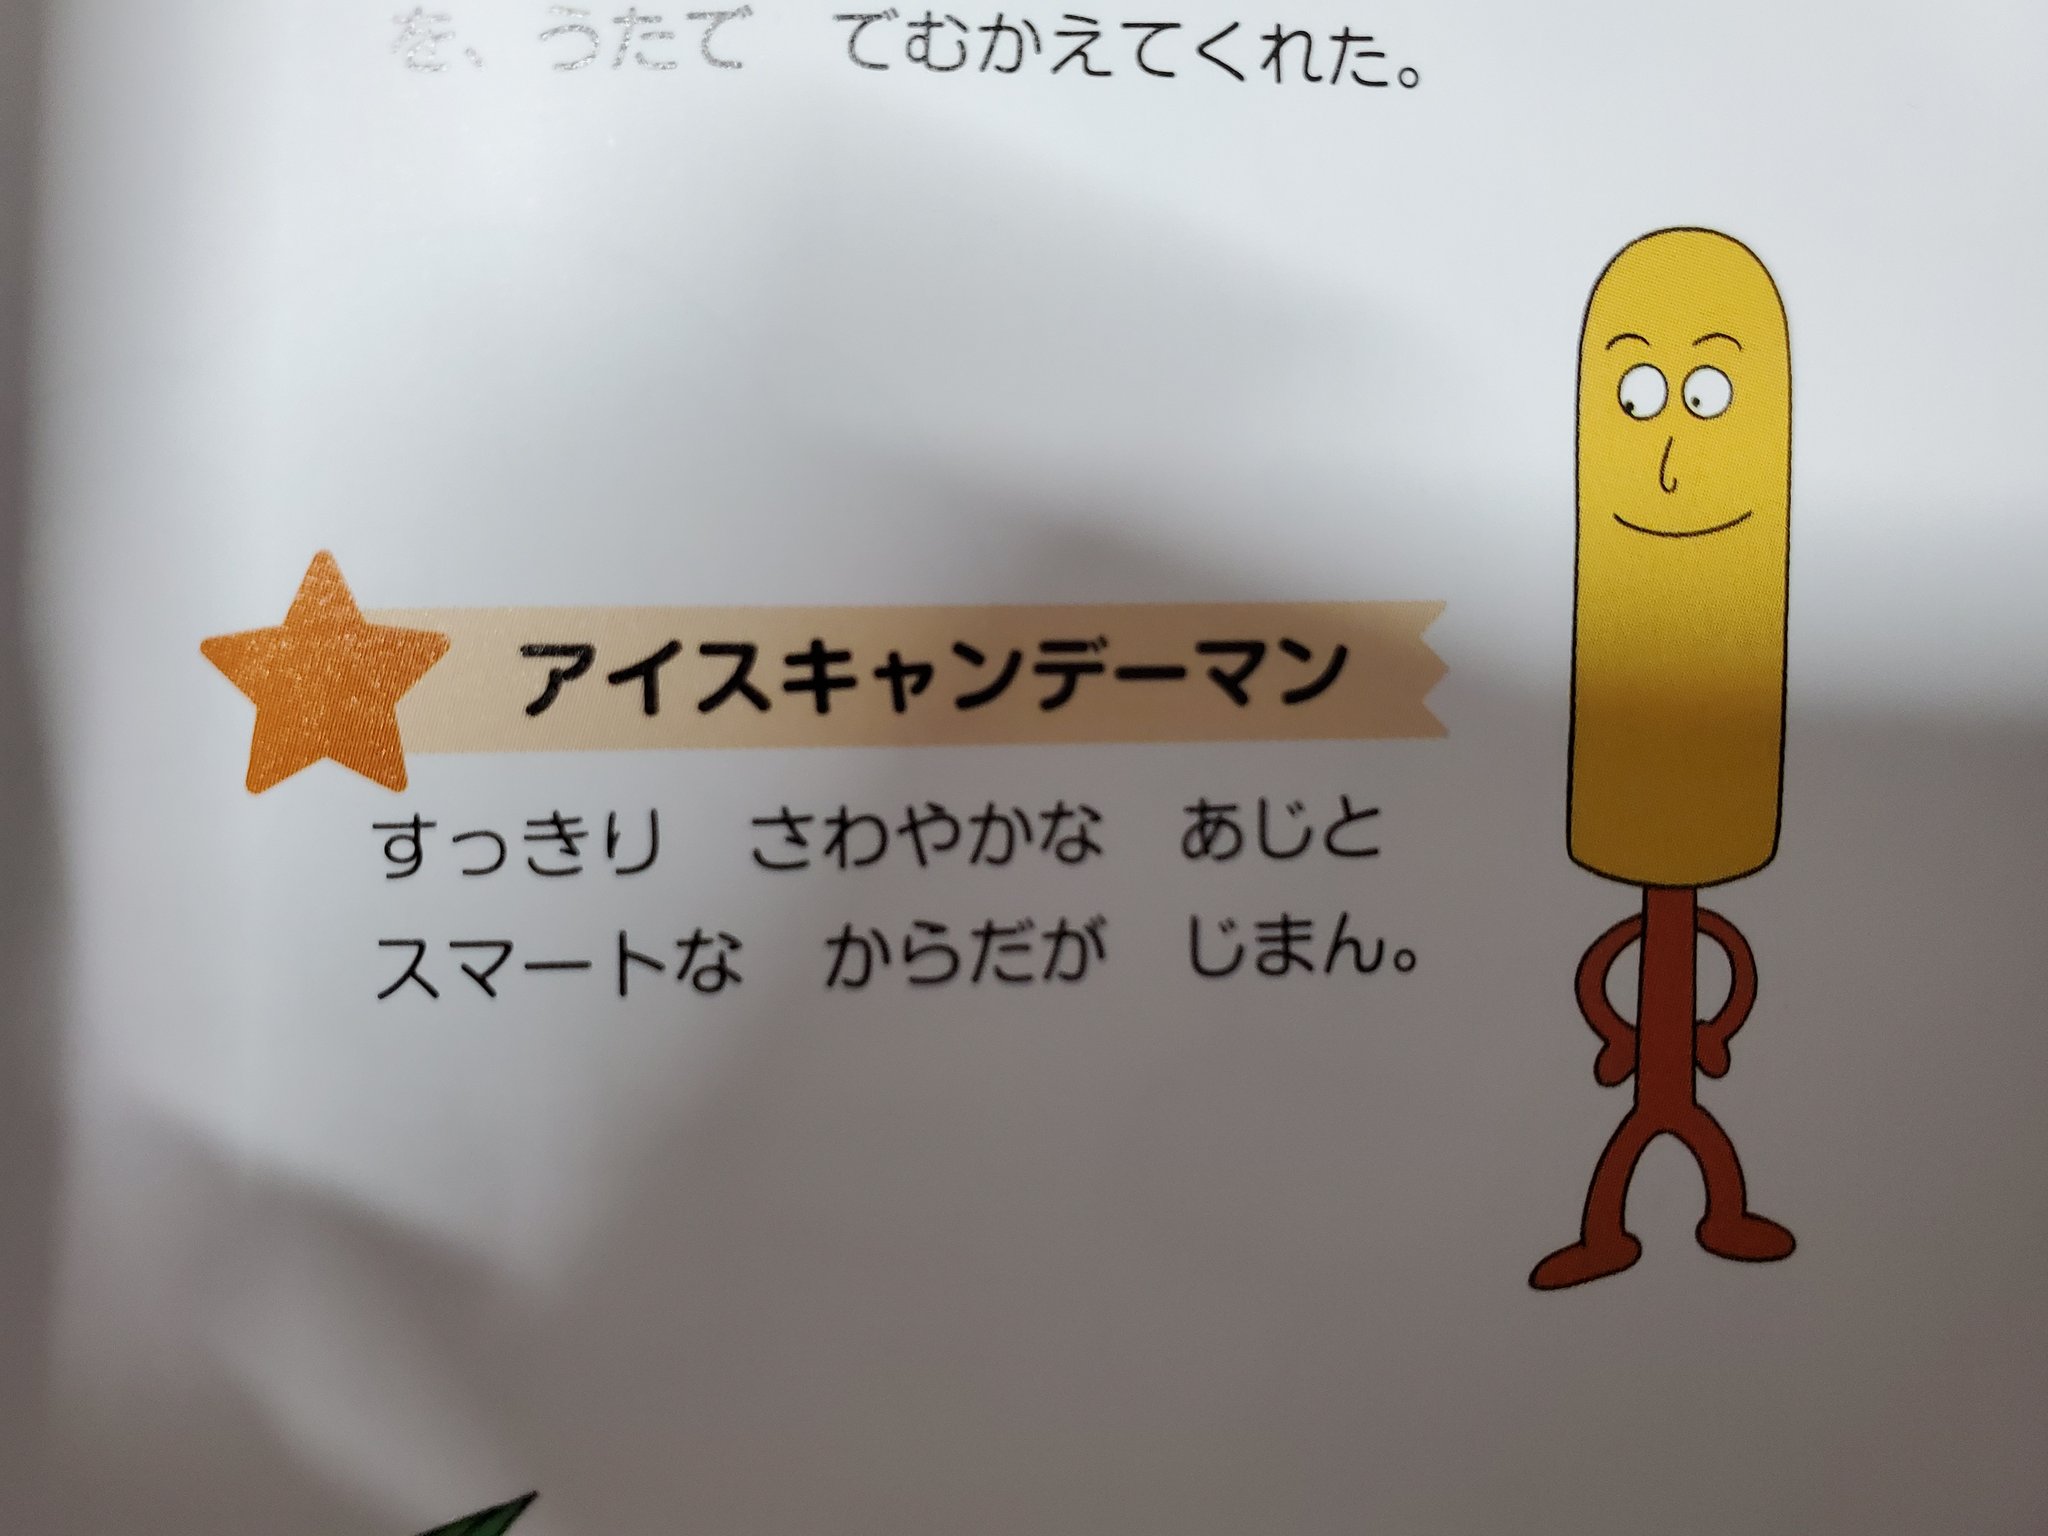 を、うたで　でむかえてくれた。
アイスキャンデーマン
すっきり　さわやかな　あじと
スマートな　からだが　じまん。